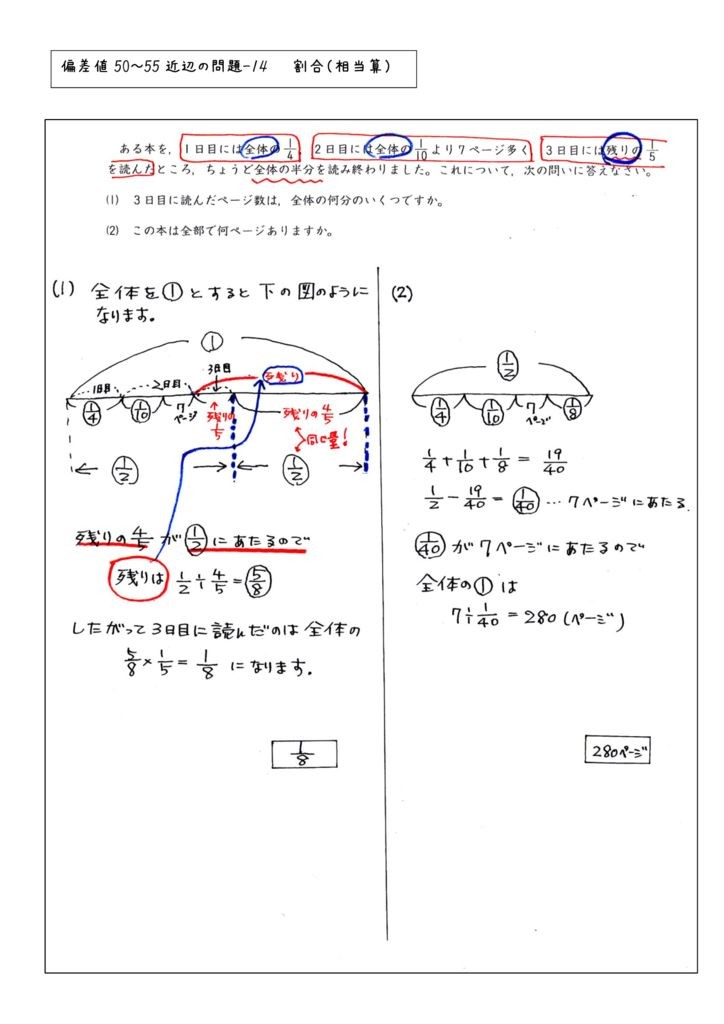 偏差値50~55近辺の問題-14 割合(相当算)
ある本を,1日目には全体の1/4,2日目には全体の1/10より7ページ多く,3日目には残りの1/5
を読んだところ,ちょうど全体の半分を読み終わりました。これについて,次の問いに答えなさい。
(1) 3日目に読んだページ数は,全体の何分のいくつですか。
(2) この本は全部で何ページありますか。
(1) 全体を①とすると下の図のように
なります。
①
1日目 2日目 3日目 残り
1/4 1/10 7ページ 残りの1/5 残りの4/5
同じ量!
1/2 1/2
残りの4/5が1/2にあたるので
残りは 1/2÷4/5=5/8
したがって3日目に読んだのは全体の
5/8×1/5=1/8 になります。
1/8
(2)
1/2
1/4 1/10 7ページ 1/8
1/4+1/10+1/8=19/40
1/2-19/40=1/40…7ページにあたる.
1/40が7ページにあたるので
全体の①は
7÷1/40=280(ページ)
280ページ